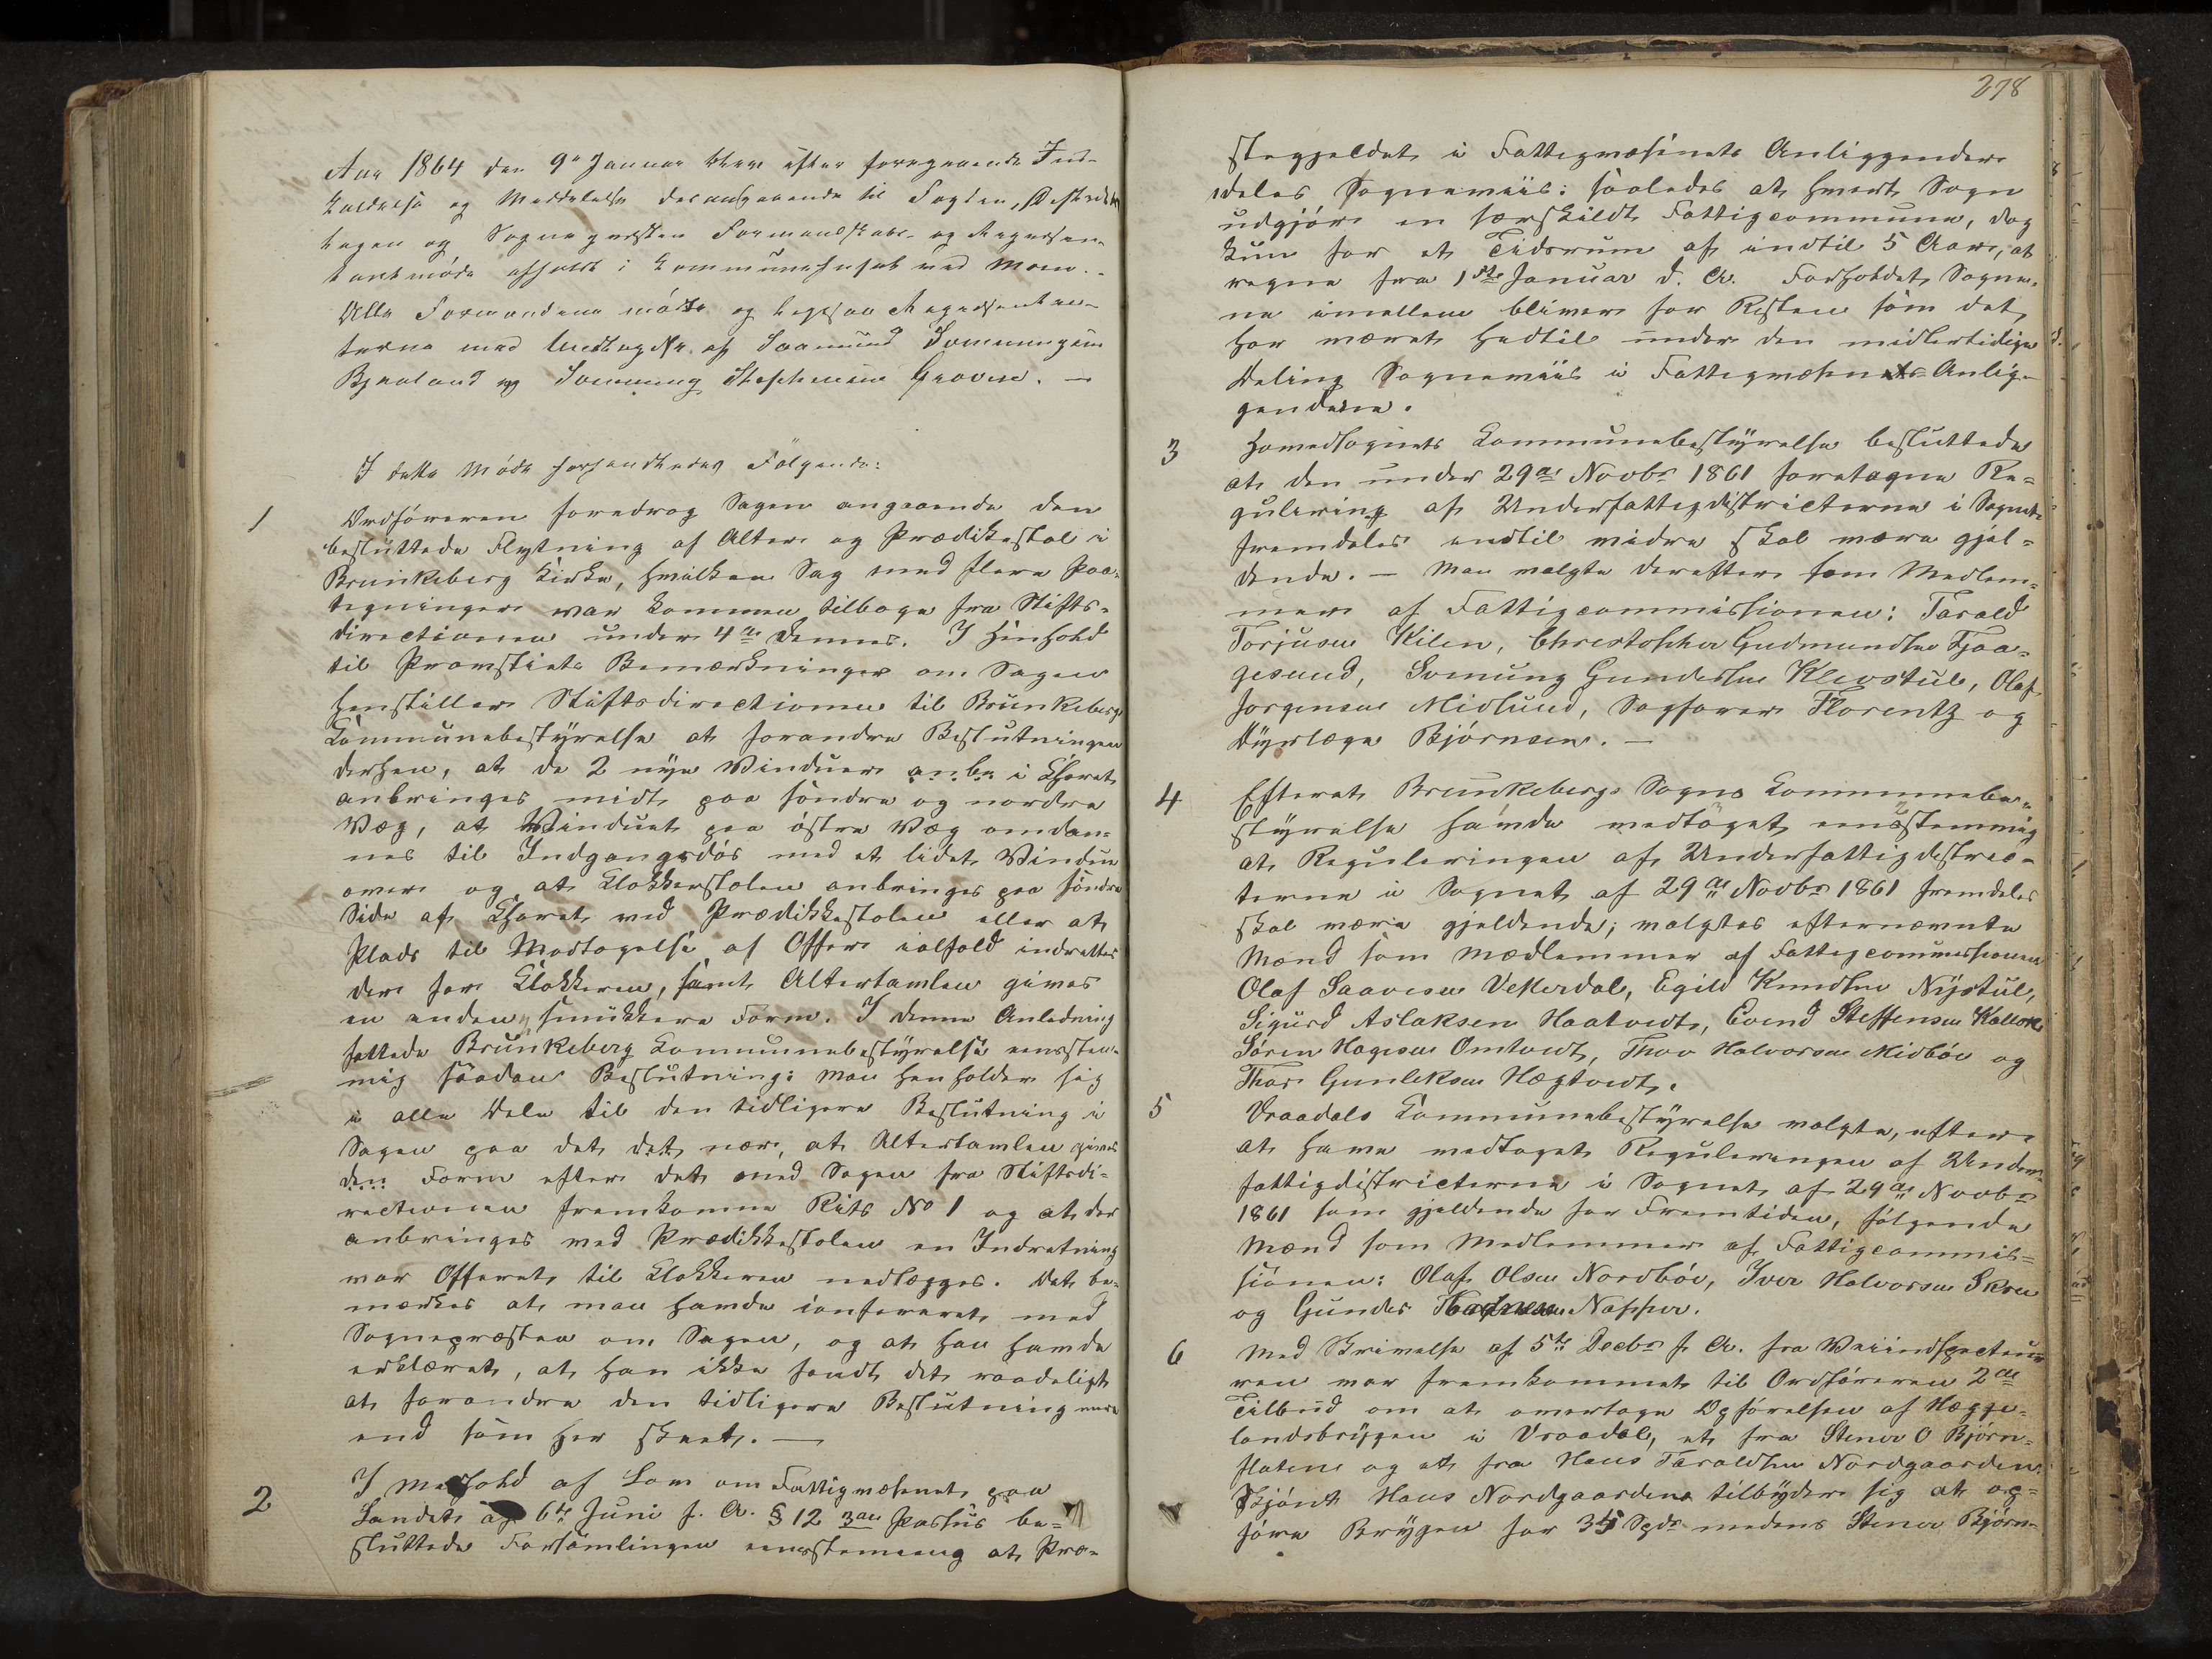 Aar 1864 den 9de Januar blev efter foregaaende Ind-
kaldelse og Meddelelse desangaaende til Fogden, Distrikts
lægen og Sognepræsten Formandskabs- og Repræsen-
tantmöde afholdt i Kommunehuset ved Moen.-
Alle Formændene mödte og ligesaa Repræsentan-
terne med Undtagelse af Saamund Sveinungsen
Bjaaland og Sveinung Stephensen Groven. —
I dette Möde forhandledes Fölgende:
1
Ordföreren foredrog Sagen angaaende den
besluttede Flytning af Alter og Prædikestol i
Brunkeberg Kirke, hvilken Sag med flere Paa-
tegninger var kommen tilbage fra Stifts-
directionen under 4de dennes. I Henhold
til Provstiets Bemærkninger om Sagen
henstiller Stiftsdirectionen til Brunkebergs
Kommunebestyrelse at forandre Beslutningen
derhen, at de 2 nye Vinduer i Choret
anbringes midt paa söndre og nordre
Væg, at Vinduet paa östre Væg omdan-
nes til Indgangsdör med et lidet Vindue
over og at Klokkerstolen anbringes paa söndre
Side af Choret ved Prædikkestolen eller at
Plads til Modtagelse af Offer ialfald indrettes
der for Klokkeren, samt Altertavlen gives
en anden, smukkere Form. I denne Anledning
fattede Brunkeberg Kommunebestyrelse eensstem-
mig saadan Beslutning: Man henholder sig
i alle Dele til den tidligere Beslutning i
Sagen paa det, det nær, at Altertavlen gives
den Form efter det med Sagen fra Stiftsdi-
rectionen fremkomne Rits No 1 og at der
anbringes ved Prædikkestolen en Indretning
hvor Offeret til Klokkeren nedlægges. Det be-
mærkes at man havde confereret med
Sognepræsten om Sagen, og at han havde
erklæret, at han ikke fandt det raadeligt
at forandre den tidligere Beslutning mere
end som her skeet. —
2
I Medhold af Lov om Fattigvæsenet paa
Landet af 6te Juni f. A. § 12 3die Passus be-
sluttede Forsamlingen eensstemmig at Præ-
278
stegjeldet i Fattigvæsenets Anliggender
deles Sogneviis: saaledes at hvert Sogn
udgjör en særskildt Fattigcommune, dog
kun for et Tidsrum af indtil 5 Aar, at
regne fra 1ste Januar d. A. Forholdet Sogne-
ne imellem bliver for Resten som det
har været hidtil under den midlertidige
Deling Sogneviis i Fattigvæsenets Anlig-
gender.
3
Hovedsognets Kommunebestyrelse besluttede
at den under 29de Novbr 1861 foretagne Re-
gulering af Underfattigdistricterne i Sognet
fremdeles indtil videre skal være gjel-
dende. — Man valgte derefter som Medlem-
mer af Fattigcommissionen: Tarald
Torjusen Kilen, Christopher Gudmundsen Fjaa-
gesund, Sveinung Gundersen Klevstul, Olaf
Jorgensen Midlund, Sagförer Florentz og
Dyrlæge Björnsen. —
4
Efterat Brunkebergs Sogns Kommunebe-
styrelse havde vedtaget eensstemmig
at Reguleringen af Underfattigdistric-
terne i Sognet af 29de Novbr 1861 fremdeles
skal være gjeldende; valgtes efternævnte
Mænd som Medlemmer af Fattigcommissionen
Olaf Saavesen Vesterdal, Egild Knudsen Nystul,
Sigurd Aslaksen Haatvedt, Evend Steffensen Kallok
Sören Hagesen Omtvedt, Thov Halvorsen Midböe og
Thor Gunleksen Hægtvedt.
5
Vraadals Kommunebestyrelse valgte, efter
at have vedtaget Reguleringen af Under-
fattigdistricterne i Sognet af 29de Novbr
1861 som gjeldende for Fremtiden, fölgende
Mænd som Medlemmer af Fattigcommis-
sionen: Olaf Olsen Nordböe, Iver Halvorsen Skree
og Gunder Napper.
6
Med Skrivelse af 5te Decbr f. A. fra Veiinspecteu-
ren var fremkommet til Ordföreren 2de
Tilbud om at overtage Opförelsen af Hægge-
landsbryggen i Vraadal, et fra Stener O Björn-
flaten og et fra Hans Taraldsen Nordgaarden.
Skjönt Hans Nordgaarden tilbyder sig at op-
före Bryggen for 35 Spdr medens Stener Björn-